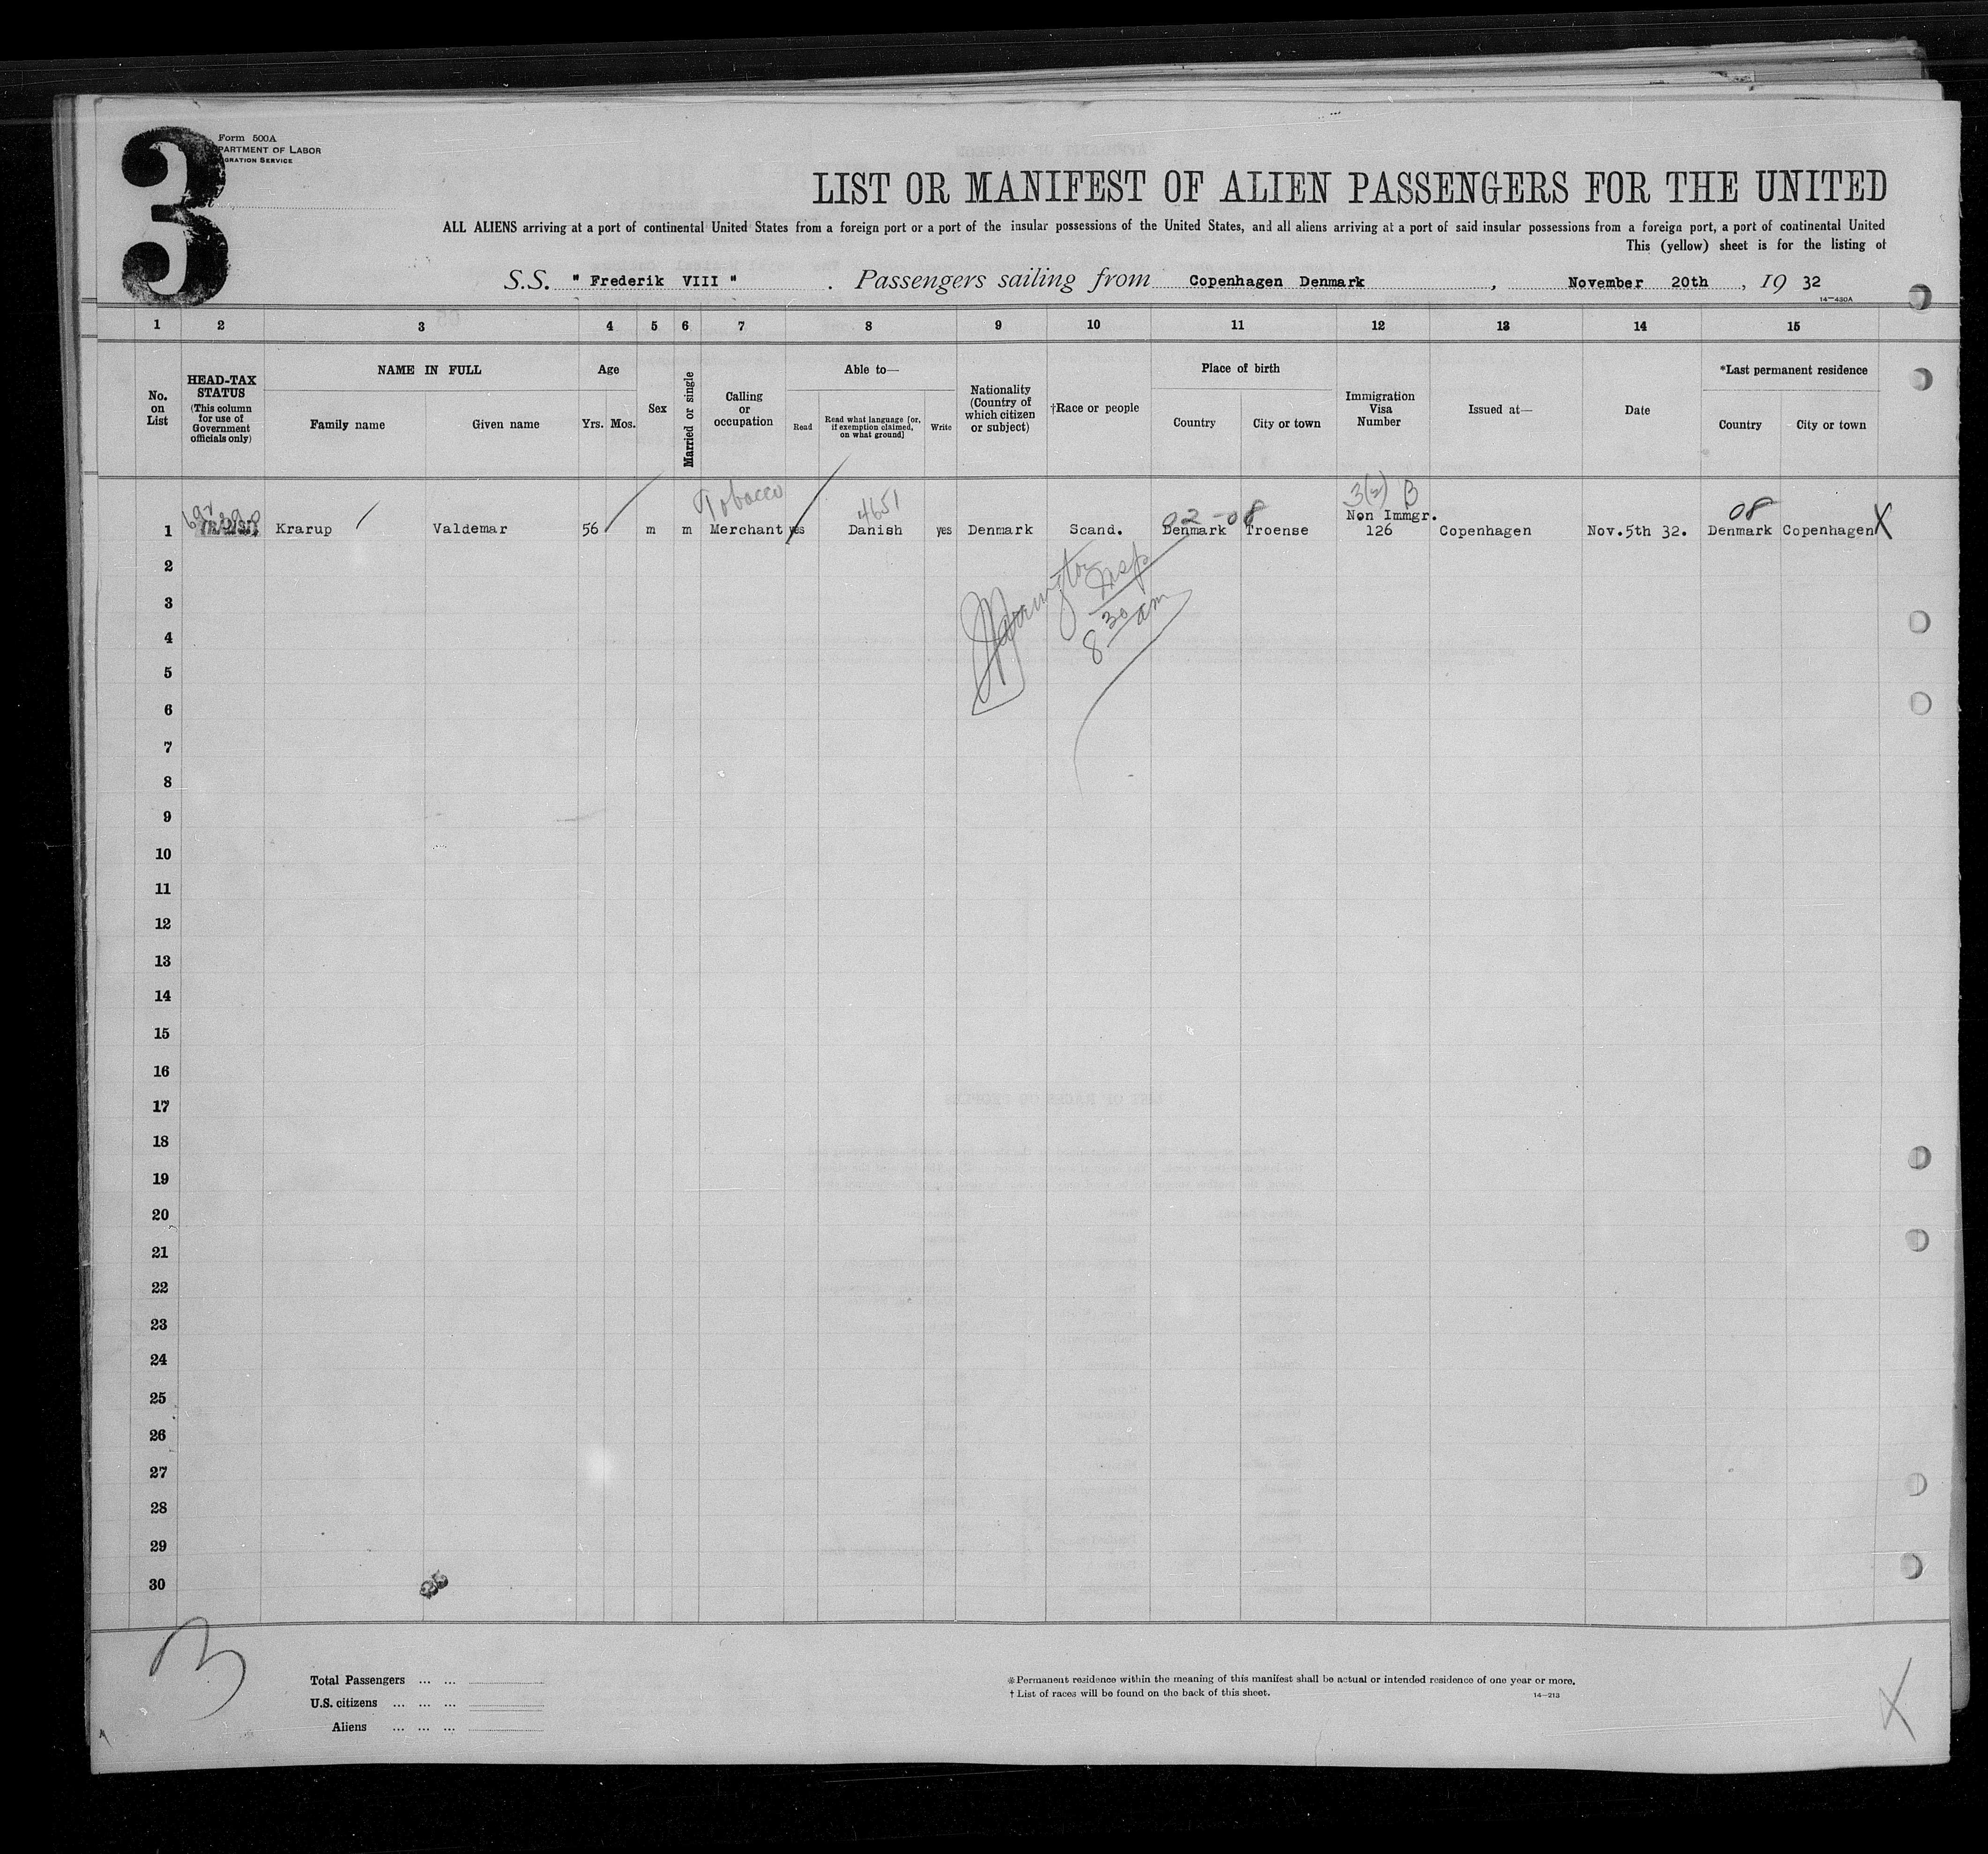 3
Form 500A
PARTMENT OF LABOR
GRATION SERVICE
LIST OR MANIFEST OF ALIEN PASSENGERS FOR THE UNITED
ALL ALIENS arriving at a port of continental United States from a foreign port or a port of the insular possessions of the United States, and all aliens arriving at a port of said insular possessions from a foreign port, a port of continental United
This (yellow) sheet is for the listing of
S.S. " Frederik VIII " . Passengers sailing from Copenhagen Denmark , November 20th , 19 32
14—430A
1 2 3 4 5 6 7 8 9 10 11 12 13 14 15
No. on List
HEAD-TAX STATUS (This column for use of Government officials only)
NAME IN FULL
Family name Given name
Age
Yrs. Mos.
Sex
Married or single
Calling or occupation
Able to—
Read Read what language [or, if exemption claimed, on what ground] Write
Nationality (Country of which citizen or subject)
†Race or people
Place of birth
Country City or town
Immigration Visa Number
Issued at—
Date
*Last permanent residence
Country City or town
Tobacco 4651 02-08 3(2) B 08
Non Immgr.
1 TRANSIT Krarup Valdemar 56 m m Merchant yes Danish yes Denmark Scand. Denmark Troense 126 Copenhagen Nov.5th 32. Denmark Copenhagen X
Insp
8 30 am
2
3
4
5
6
7
8
9
10
11
12
13
14
15
16
17
18
19
20
21
22
23
24
25
26
27
28
29
30
3
Total Passengers ... ...
U.S. citizens ... ... ...
Aliens ... ... ...
*Permanent residence within the meaning of this manifest shall be actual or intended residence of one year or more.
† List of races will be found on the back of this sheet.
14—213
X